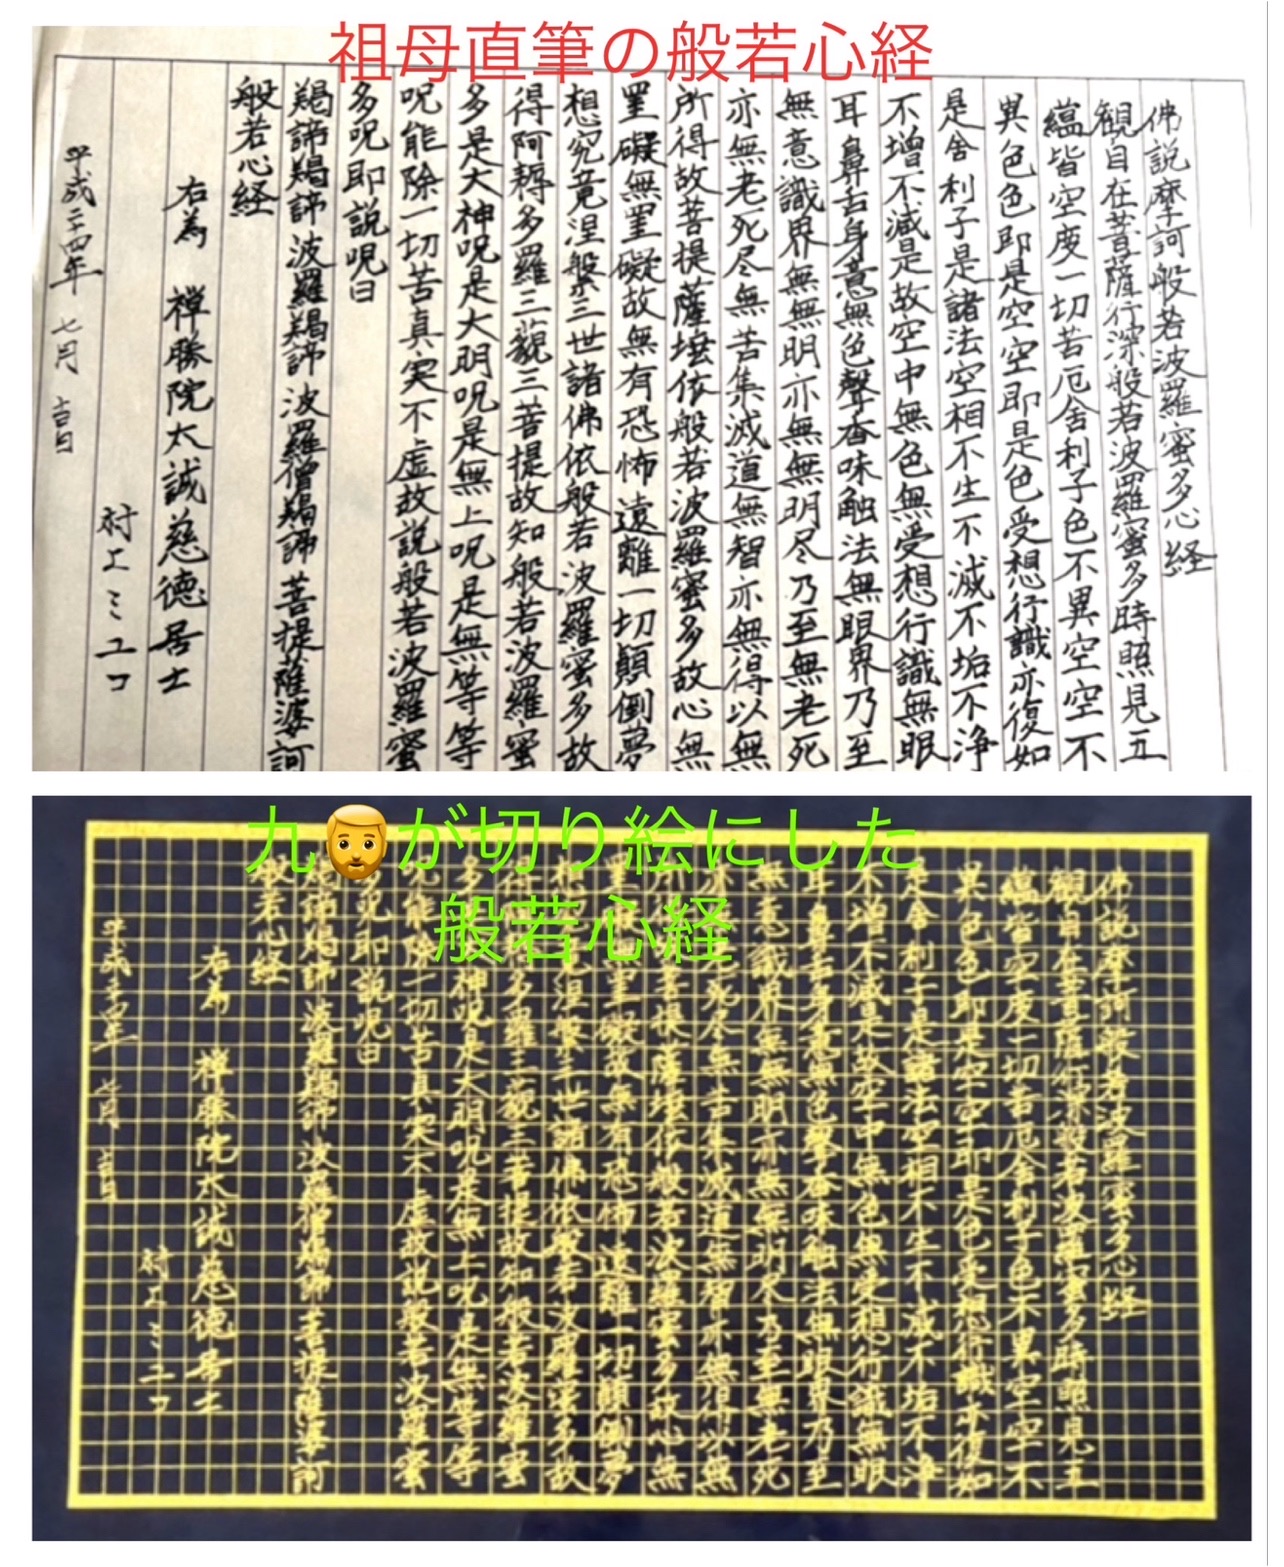 祖母直筆の般若心経
佛説摩訶般若波羅蜜多心経
観自在菩薩行深般若波羅蜜多時照見五
蘊皆空度一切苦厄舎利子色不異空空不
異色色即是空空即是色受想行識亦復如
是舎利子是諸法空相不生不滅不垢不浄
不増不減是故空中無色無受想行識無眼
耳鼻舌身意無色聲香味触法無眼界乃至
無意識界無無明亦無無明尽乃至無老死
亦無老死尽無苦集滅道無智亦無得以無
所得故菩提薩埵依般若波羅蜜多故心無
罣礙無罣礙故無有恐怖遠離一切顛倒夢
想究竟涅槃三世諸佛依般若波羅蜜多故
得阿耨多羅三藐三菩提故知般若波羅蜜
多是大神呪是大明呪是無上呪是無等等
呪能除一切苦真実不虚故説般若波羅蜜
多呪即説呪曰
羯諦羯諦 波羅羯諦 波羅僧羯諦 菩提薩婆訶
般若心経
右為 禅勝院太誠慈徳居士
村上ミユコ
平成二十四年 七月 吉日
九🧔が切り絵にした
般若心経
佛説摩訶般若波羅蜜多心経
観自在菩薩行深般若波羅蜜多時照見五
蘊皆空度一切苦厄舎利子色不異空空不
異色色即是空空即是色受想行識亦復如
是舎利子是諸法空相不生不滅不垢不浄
不増不減是故空中無色無受想行識無眼
耳鼻舌身意無色聲香味触法無眼界乃至
無意識界無無明亦無無明尽乃至無老死
死尽無苦集滅道無智亦無得以無
菩提薩埵依般若波羅蜜多故心無
罣礙故無有恐怖遠離一切顛倒夢
涅槃三世諸佛依般若波羅蜜多故
多羅三藐三菩提故知般若波羅蜜
多 神呪是大明呪是無上呪是無等等
呪能除一切苦真実不虚故説般若波羅蜜
多呪即説呪曰
羯諦羯諦 波羅羯諦 波羅僧羯諦 菩提薩婆訶
般若心経
右為 禅勝院太誠慈徳居士
村上ミユコ
平成二十四年 七月 吉日